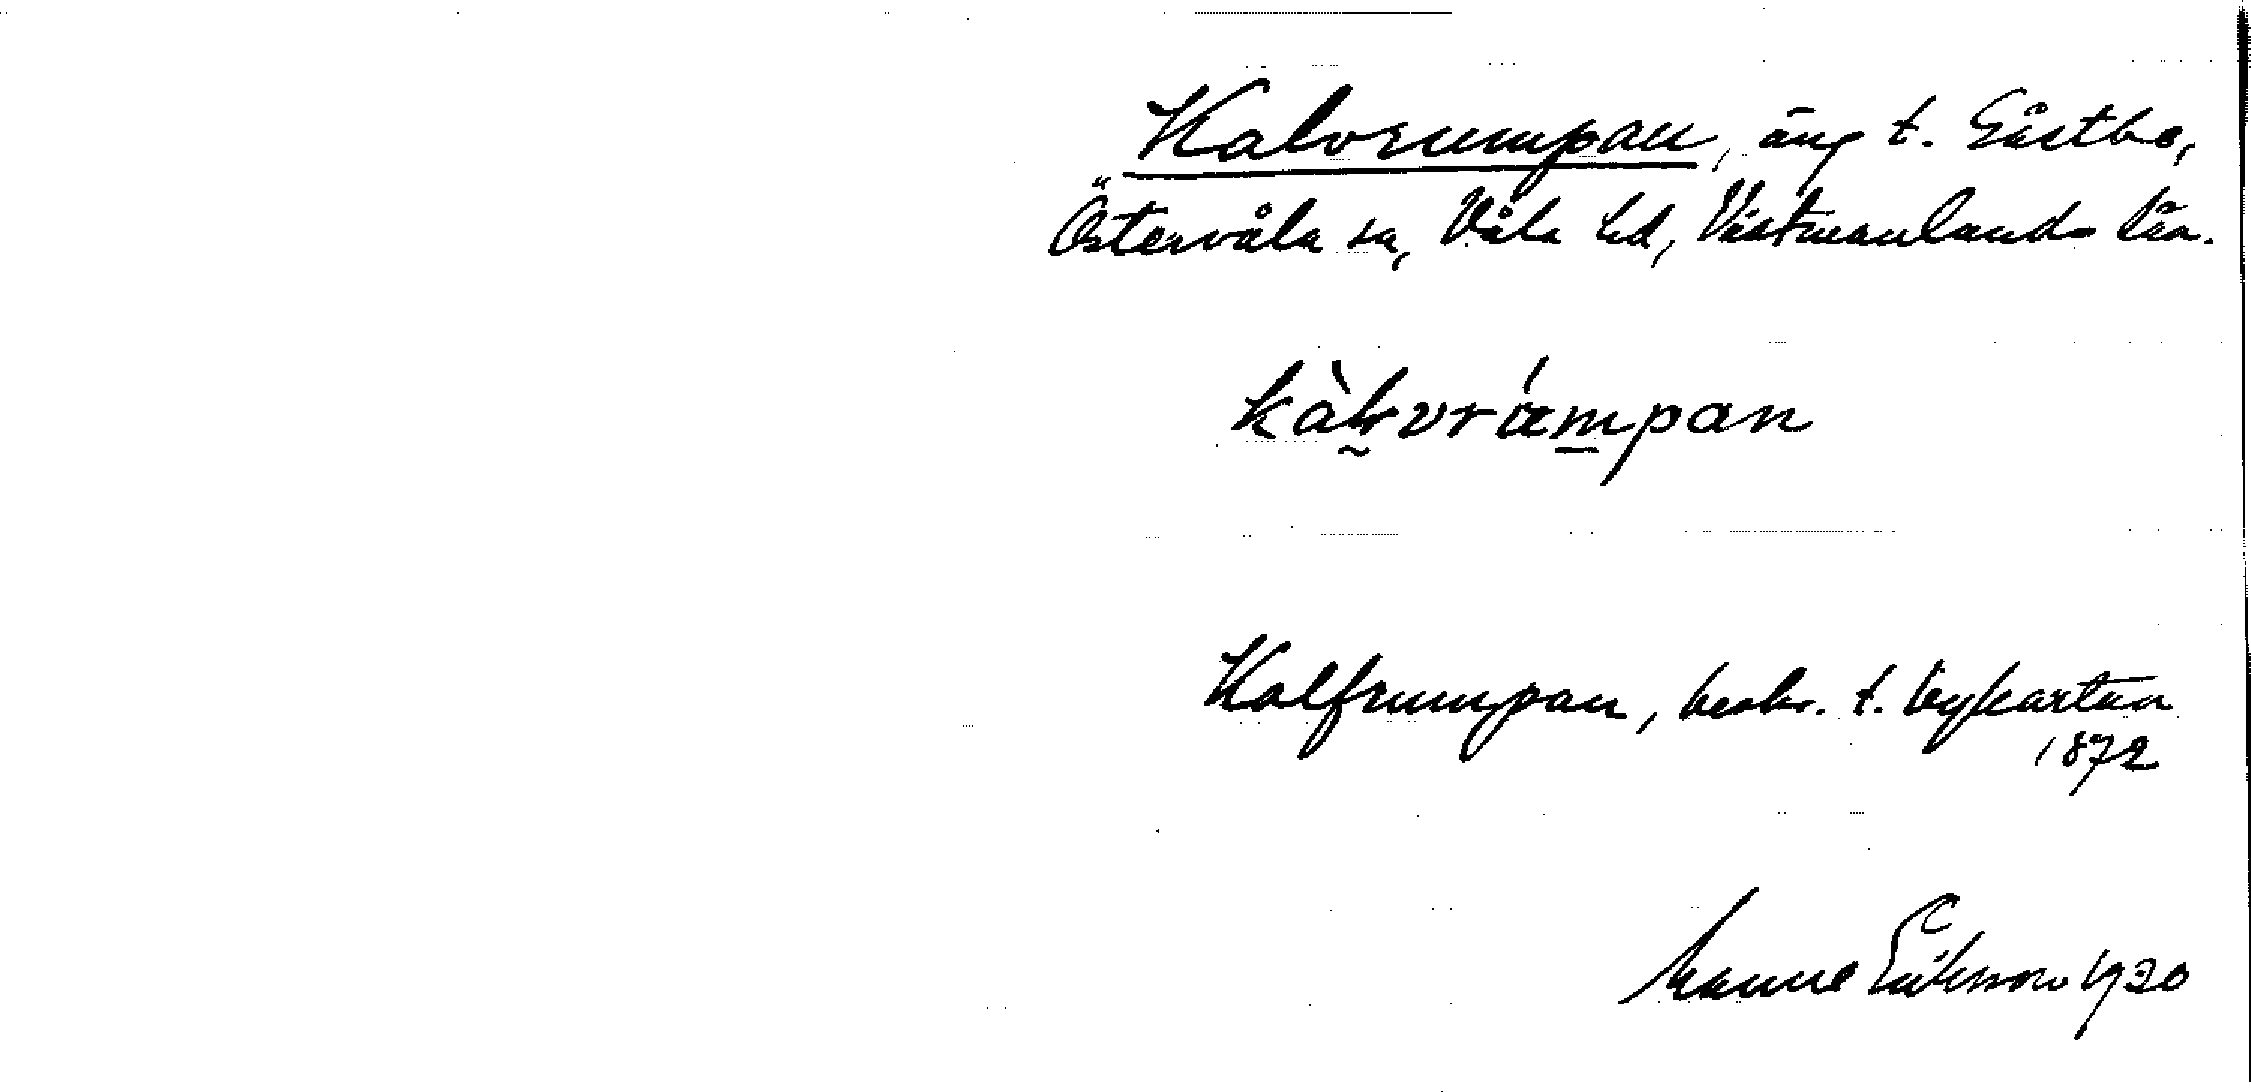 Kalvrumpan, äng t. Gästbo,
Östervåla sn, Våla hd, Västmanlands län.
Kalfrumpan, beskr. t. bykartan
1872
Manne Eriksson 1930